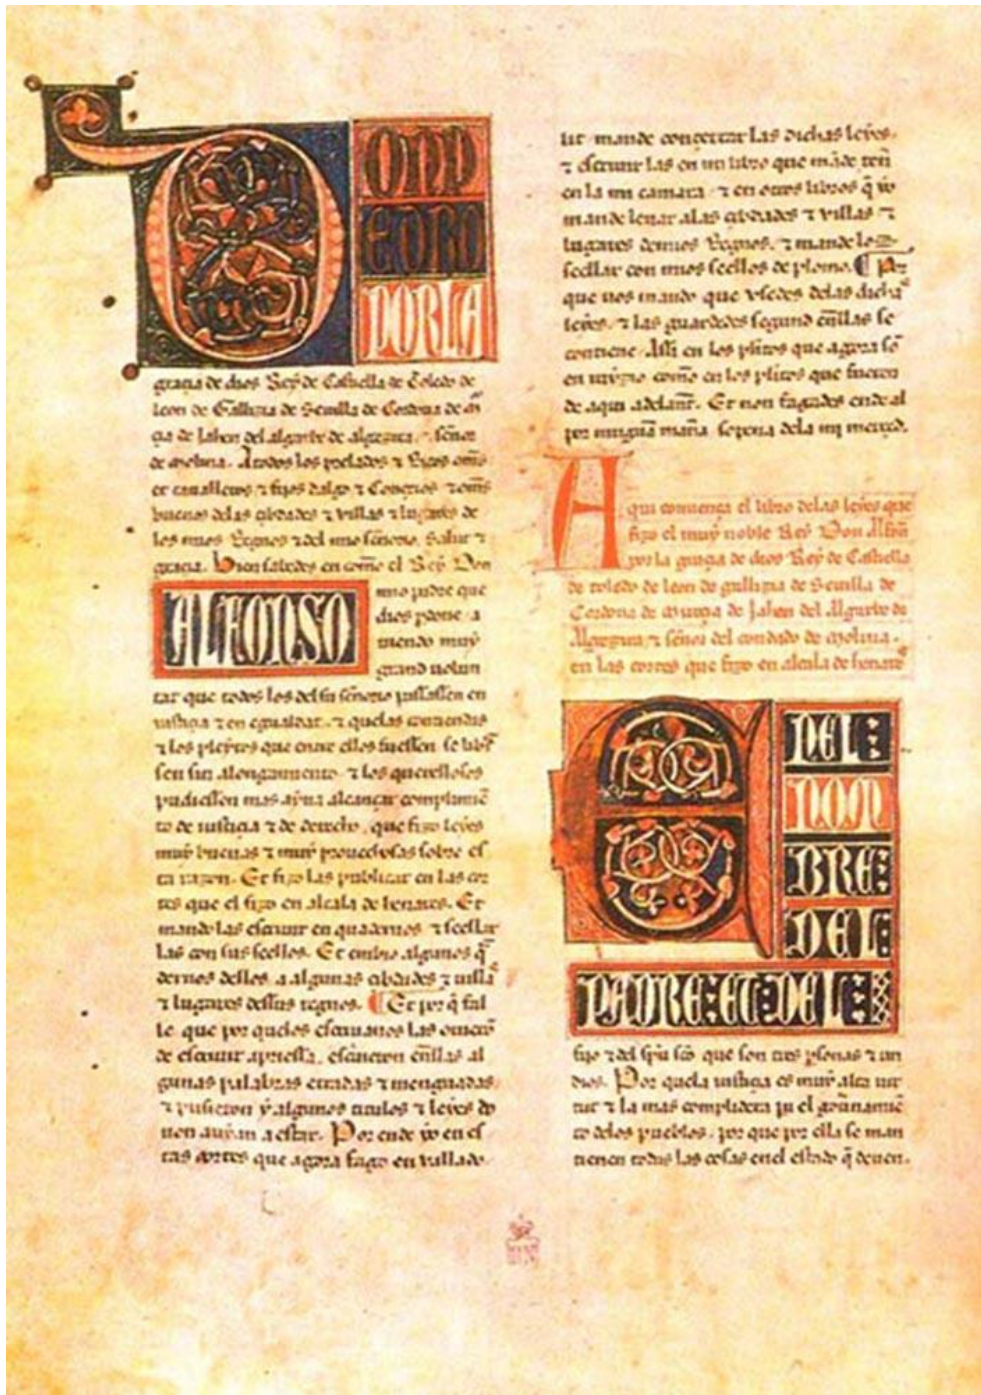 DON P
EDRO
POR LA
gracia de dios Rey de Castiella de Toledo de
leon de Gallizia de Seuilla de Cordoua de mur
çia de Jahen del algarbe de algezira. ⁊ señor
de molina. A todos los perlados ⁊ Ricos omes
et caualleros ⁊ fijos dalgo ⁊ Conçeios ⁊ omes
buenos delas çibdades ⁊ villas ⁊ lugares de
los mios Regnos ⁊ del mio señorio. Salut ⁊
gracia. Bien sabedes en commo el Rey Don
ALFONSO
mio padre que
dios perdone a
uiendo muy
grand uolun
tat que todos los del su señorio passassen en
iustiçia ⁊ en egualdat. ⁊ quelas contiendas
⁊ los pleytos que entre ellos fuessen se libras
sen sin alongamiento ⁊ los querellosos
pudiessen mas ayna alcançar complimien
to de iustiçia ⁊ de derecho, que fizo leyes
muy buenas ⁊ muy prouechosas sobre es
ta razon. Et fizo las publicar en las cor
tes que el fizo en alcala de henares. Et
mando las escriuir en quadernos ⁊ seellar
las con sus seellos. Et enbio algunos q̃
dernos dellos a algunas çibdades ⁊ uillas
⁊ lugares dessus regnos. ¶ Et por q̃ fal
le que por quelos escriuanos las ouieron
de escriuir apriessa, escriuieron enllas al
gunas palabras erradas ⁊ menguadas
⁊ pusieron y algunos titulos ⁊ leyes do
non auian a estar. Por ende yo en es
tas cortes que agora fago en vallado
lit mande conçertar las dichas leyes.
⁊ escriuir las en un libro que mãde tener
en la mi camara ⁊ en otros libros q̃ yo
mande leuar alas çibdades ⁊ villas ⁊
lugares demios Regnos. ⁊ mande los
seellar con mios seellos de plomo. ¶ Por
que uos mando que vsedes delas dichas
leyes. ⁊ las guardedes segund enllas se
contiene. Assi en los pleitos que agora son
en iuyzio commo en los pleitos que fueren
de aqui adelante. Et non fagades ende al
por ninguna manera so pena dela mi merçed.
Aqui comiença el libro delas leyes que
fizo el muy noble Rey Don Alfon
por la graçia de dios Rey de Castiella
de toledo de leon de gallizia de Seuilla de
Cordoua de Murçia de Jahen del Algarbe de
Algezira, ⁊ señor del condado de Molina.
en las cortes que fizo en alcala de henares
EN EL:
NOM
BRE:
DEL:
PADRE:ET:DEL:
fijo ⁊ del sp̃u sc̃o que son tres personas ⁊ un
dios. Por quela iustiçia es muy alta uir
tut ⁊ la mas complidera pa el gouernamien
to delos pueblos. por que por ella se man
tienen todas las cosas enel estado q̃ deuen.